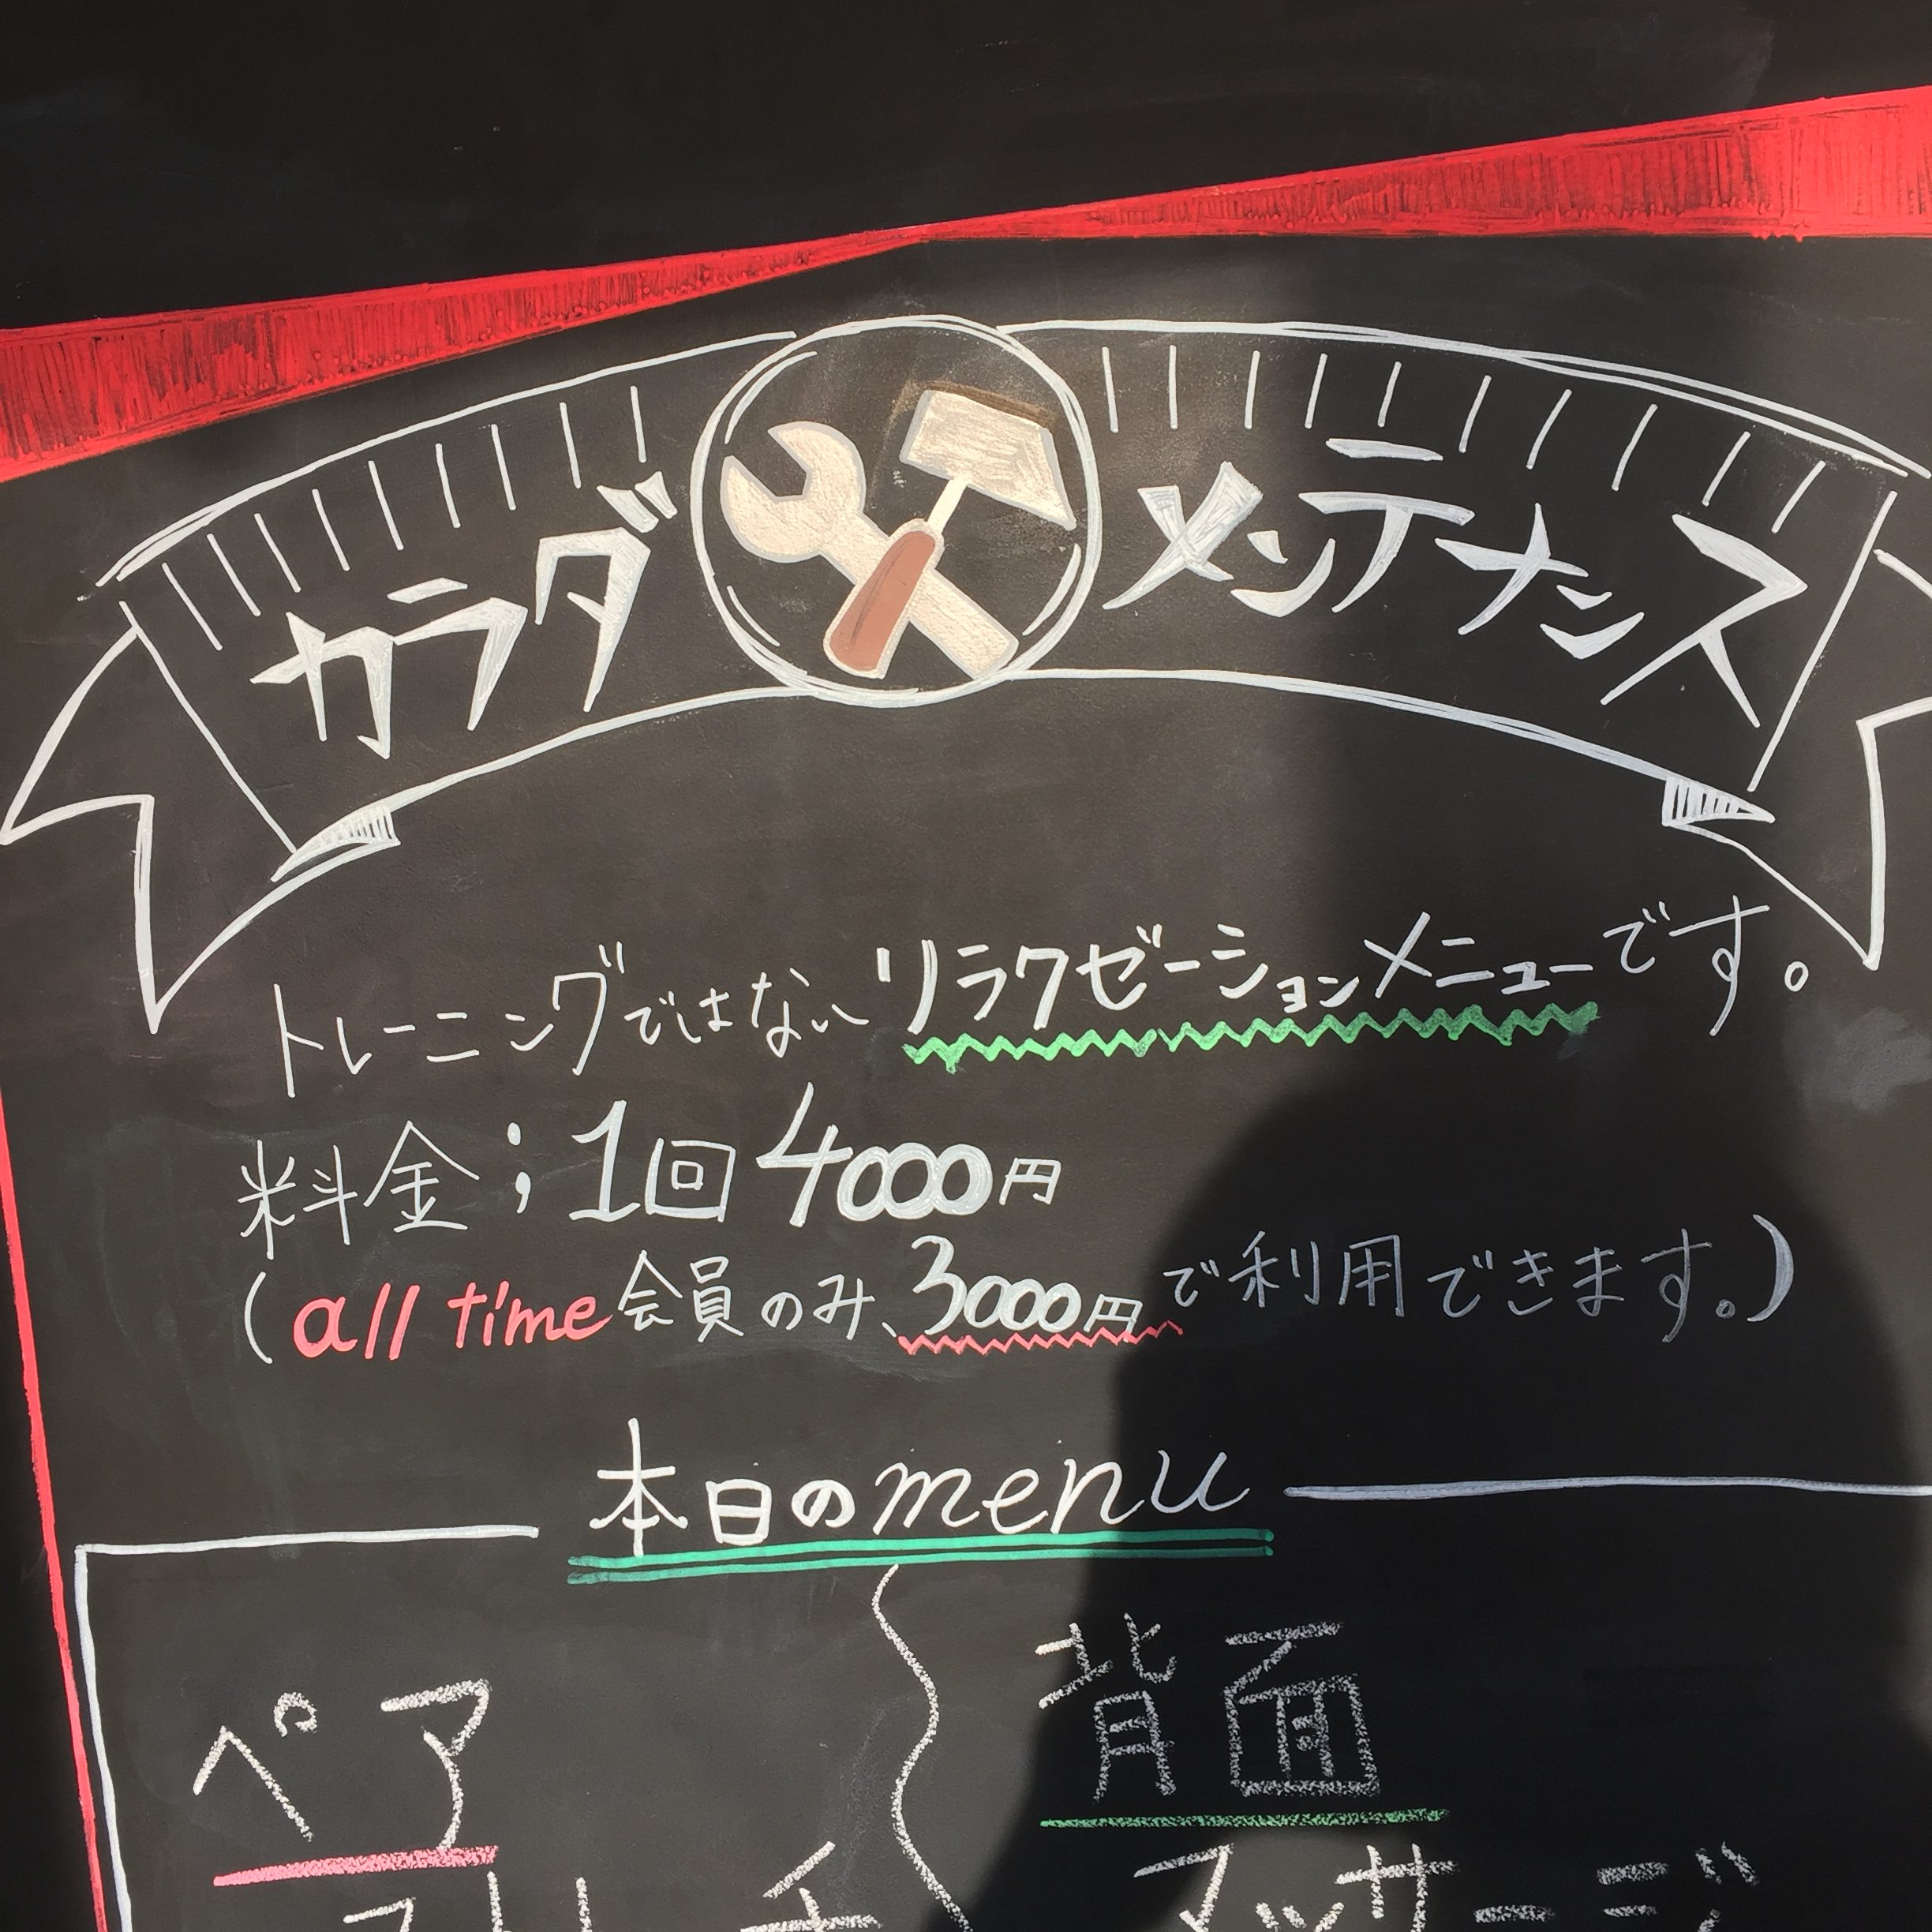 カラダ メンテナンス
トレーニングではないリラクゼーションメニューです。
料金;1回4000円
(all time会員のみ、3000円で利用できます。)
本日のmenu
ペア
ストレッチ
背面
マッサージ